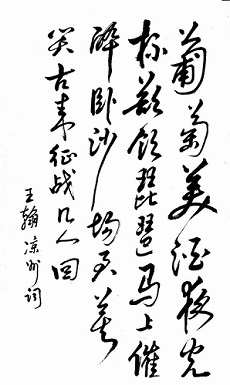 葡萄美酒夜光
杯欲饮琵琶马上催
醉卧沙场君莫
笑古来征战几人回
王翰凉州词